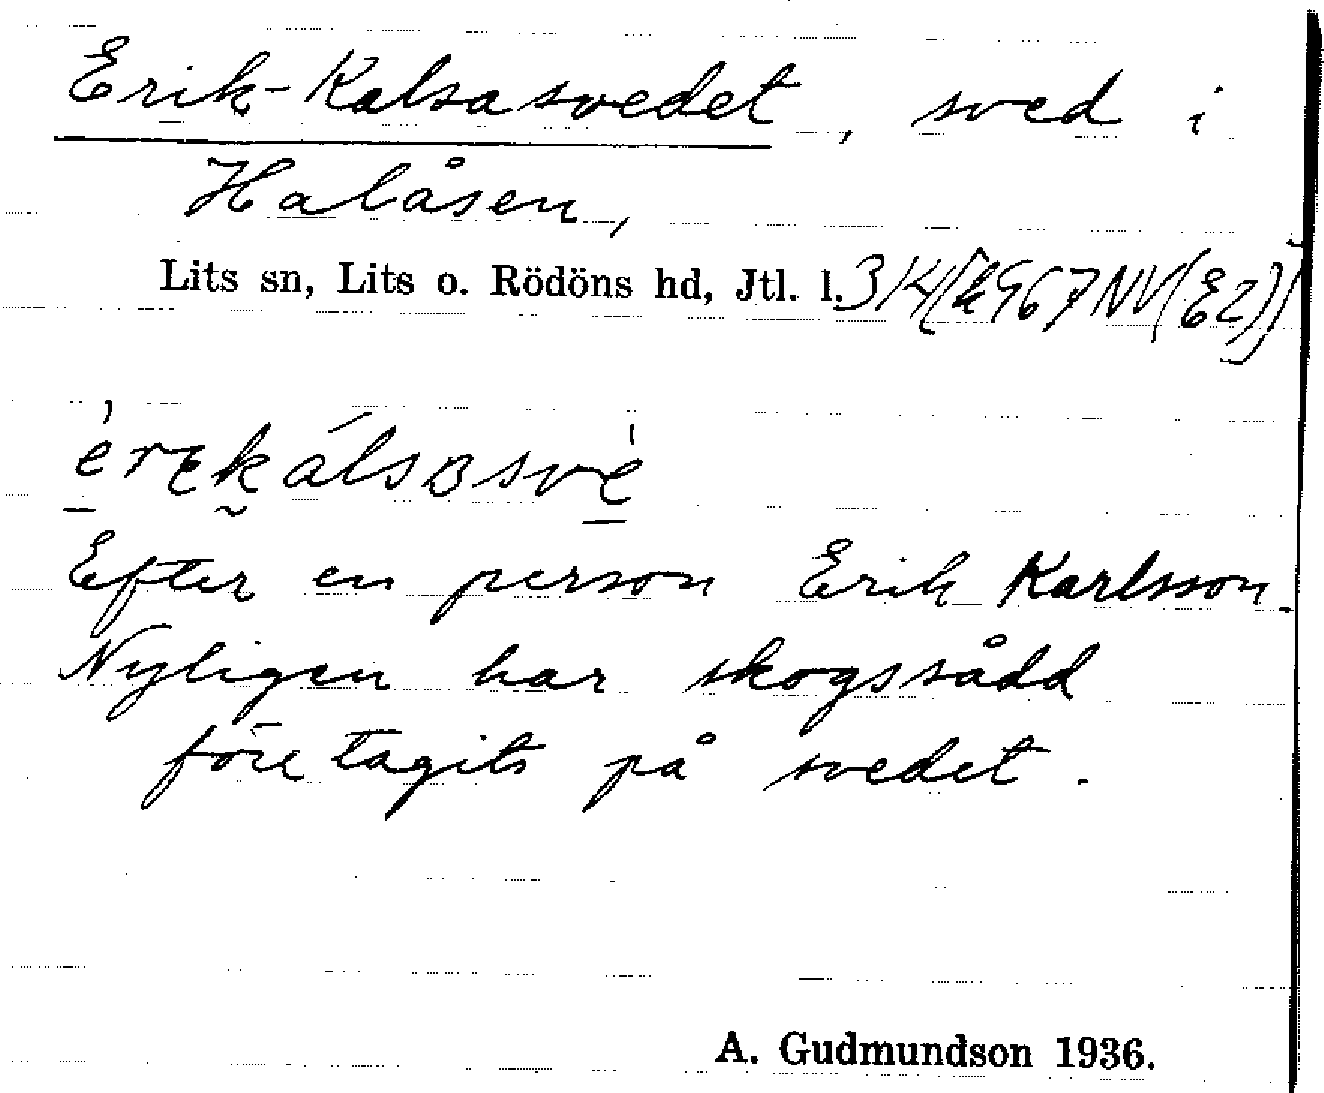 Erik-Kalsasvedet, sved i
Halåsen,
Lits sn, Lits o. Rödöns hd, Jtl. l.
Efter en person Erik Karlsson.
Nyligen har skogssådd
företagits på svedet.
A. Gudmundson 1936.